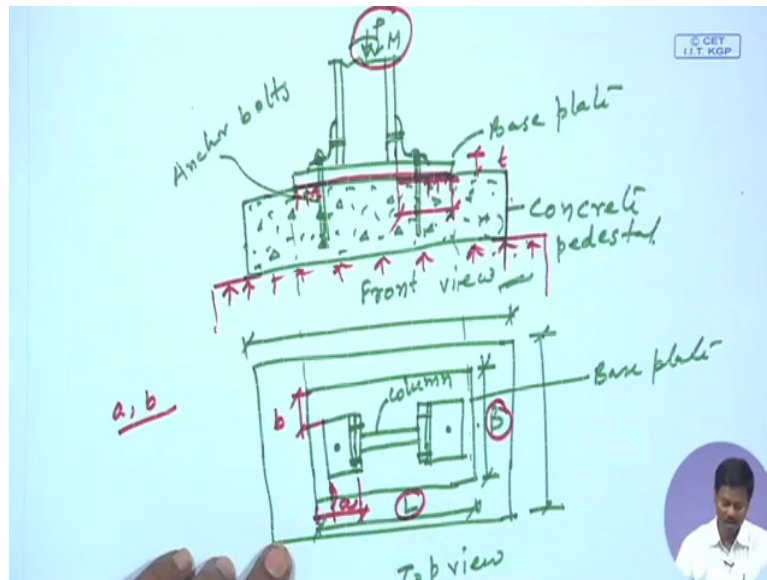 P
M
© CET
I.I.T. KGP
Anchor bolts
Base plate
t
Concrete
pedestal
Front view
a, b
b
column
B
Base plate
a
L
Top view